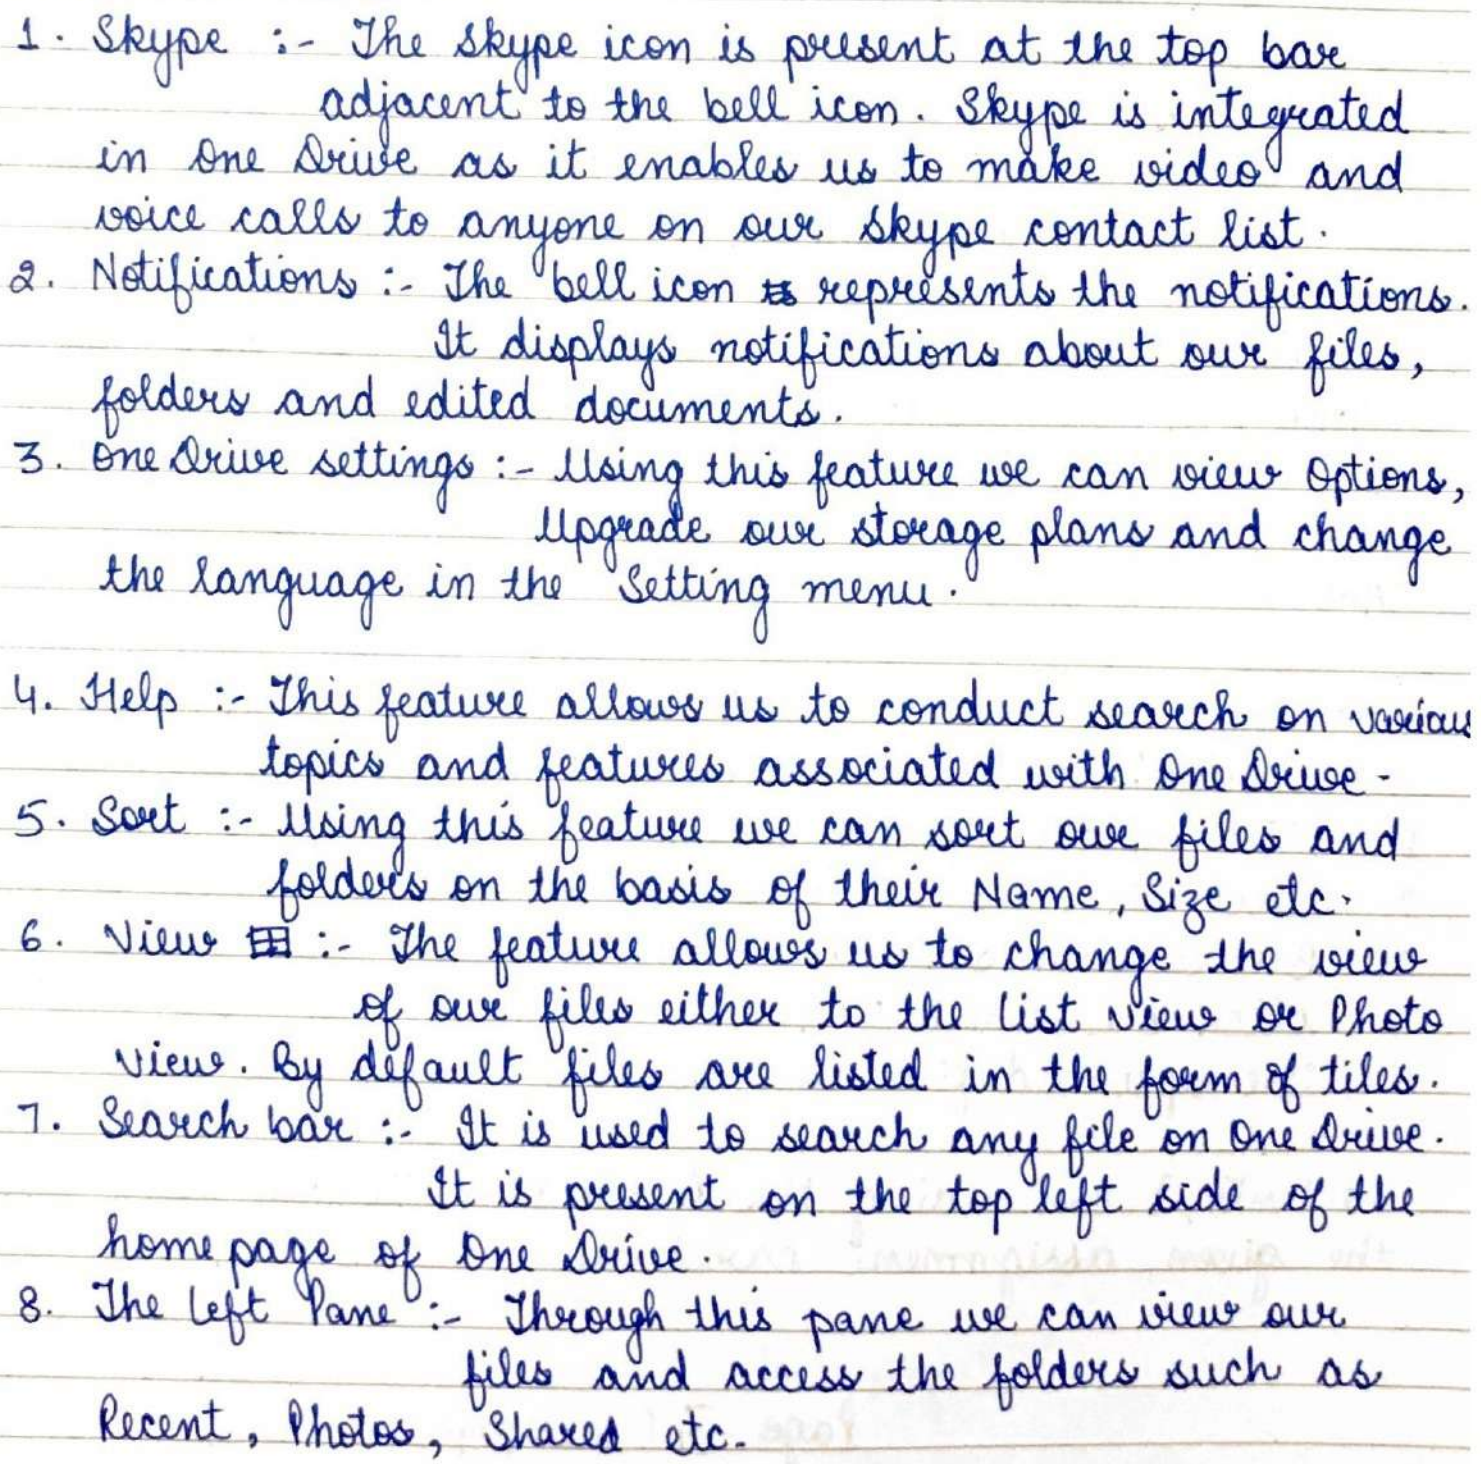 1. Skype :- The Skype icon is present at the top bar
adjacent to the bell icon. Skype is integrated
in One Drive as it enables us to make video and
voice calls to anyone on our Skype contact list.
2. Notifications :- The bell icon represents the notifications.
It displays notifications about our files,
folders and edited documents.
3. One Drive settings :- Using this feature we can view Options,
Upgrade our storage plans and change
the language in the Setting menu.
4. Help :- This feature allows us to conduct search on various
topics and features associated with One Drive -
5. Sort :- Using this feature we can sort our files and
folders on the basis of their Name, Size etc.
6. View :- The feature allows us to change the view
of our files either to the list view or Photo
view. By default files are listed in the form of tiles.
7. Search bar :- It is used to search any file on One Drive.
It is present on the top left side of the
home page of One Drive.
8. The Left Pane :- Through this pane we can view our
files and access the folders such as
Recent, Photos, Shared etc.